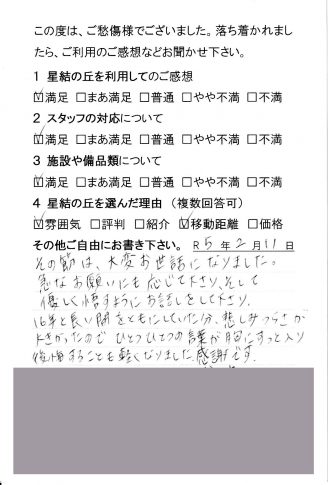 この度は、ご愁傷様でございました。落ち着かれまし
たら、ご利用のご感想などお聞かせ下さい。
1 星結の丘を利用してのご感想
☑満足 □まあ満足 □普通 □やや不満 □不満
2 スタッフの対応について
☑満足 □まあ満足 □普通 □やや不満 □不満
3 施設や備品類について
☑満足 □まあ満足 □普通 □やや不満 □不満
4 星結の丘を選んだ理由（複数回答可）
☑雰囲気 □評判 □紹介 ☑移動距離 □価格
その他ご自由にお書き下さい。 R5年2月11日
その節は、大変お世話になりました。
急なお願いにも応じて下さり、そして
優しく諭すようにお話をして下さり、
16年と長い間をともにしていた分、悲しみつらさが
大きかったので ひとつひとつの言葉が胸にすっと入り
後悔することも軽くなりました。感謝です。